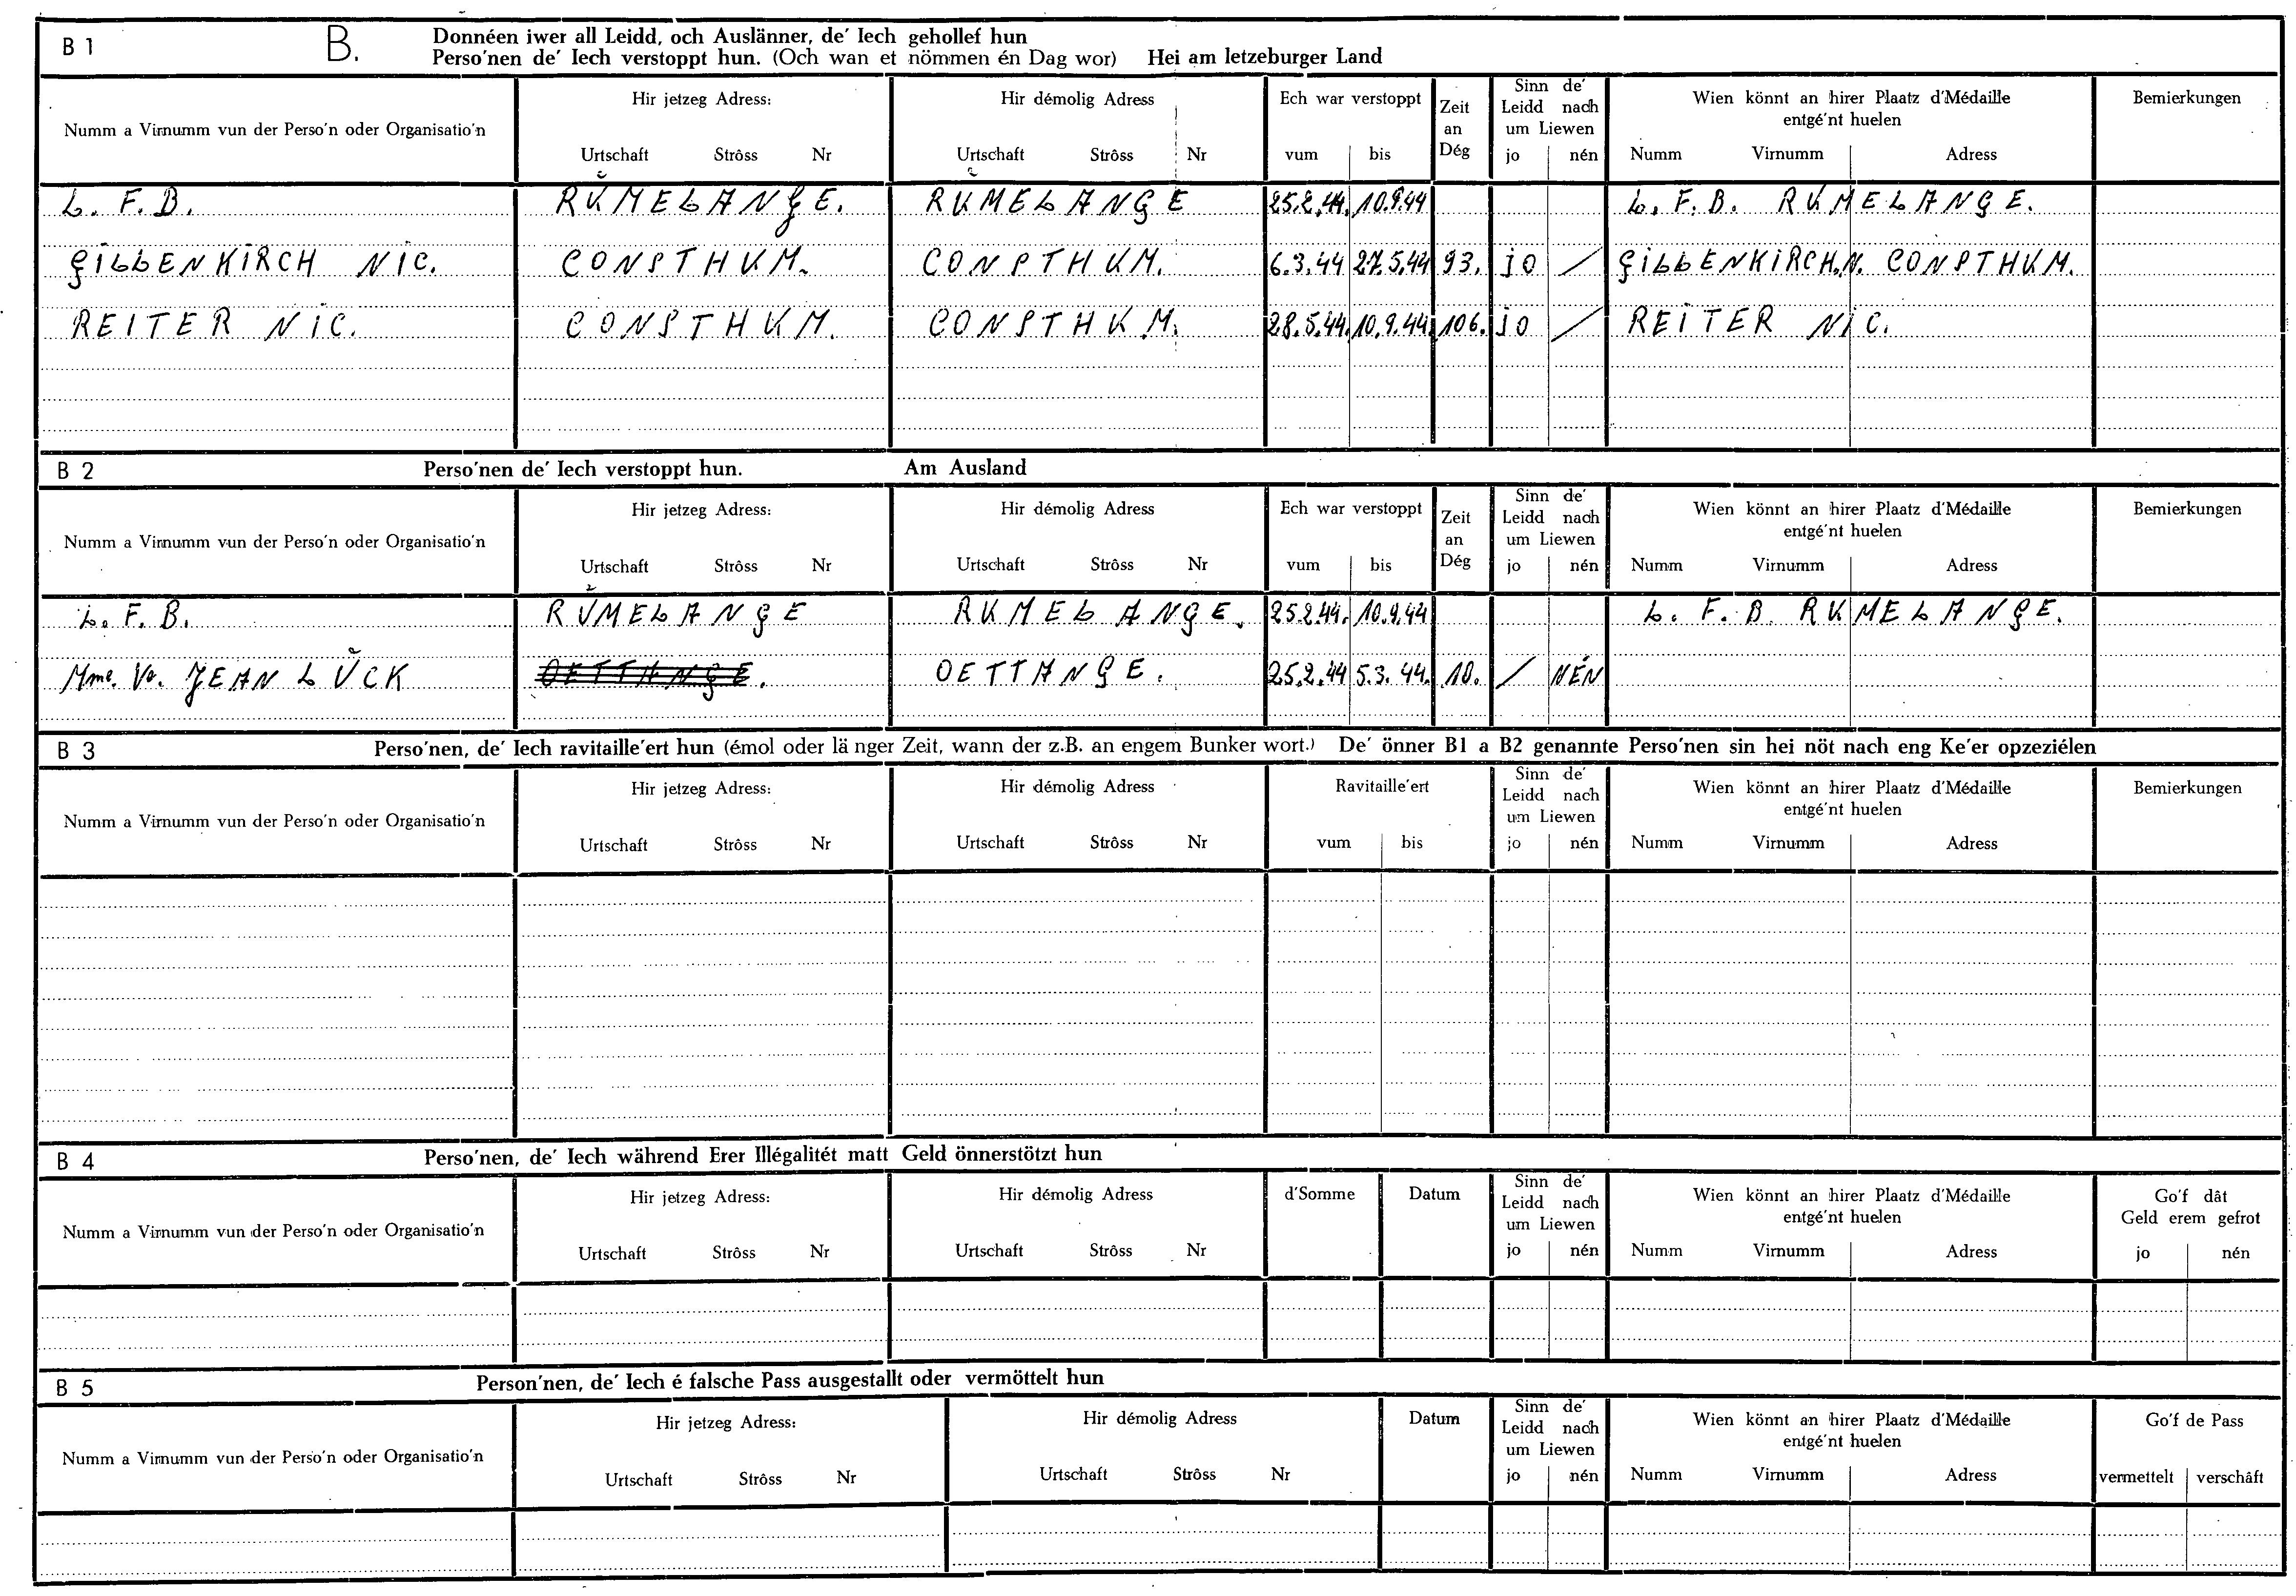 B 1 B. Donnéen iwer all Leidd, och Auslänner, de' Iech gehollef hun
Perso'nen de' Iech verstoppt hun. (Och wan et nömmen én Dag wor) Hei am letzeburger Land
Numm a Virnumm vun der Perso'n oder Organisatio'n
Hir jetzeg Adress:
Urtschaft Strôss Nr
Hir démolig Adress
Urtschaft Strôss Nr
Ech war verstoppt
vum bis
Zeit
an
Dég
Sinn de'
Leidd nach
um Liewen
jo nén
Wien könnt an hirer Plaatz d'Médaille
entgé'nt huelen
Numm Virnumm Adress
Bemierkungen
L. F. B. RUMELANGE. RUMELANGE 25.2.44. 10.9.44 L. F. B. RUMELANGE.
GILLENKIRCH NIC. CONSTHUM. CONSTHUM. 6.3.44 27.5.44 93. jo / GILLENKIRCH.N. CONSTHUM.
REITER NIC. CONSTHUM. CONSTHUM. 28.5.44. 10.9.44. 106. jo / REITER NIC.
B 2 Perso'nen de' Iech verstoppt hun. Am Ausland
Numm a Virnumm vun der Perso'n oder Organisatio'n
Hir jetzeg Adress:
Urtschaft Strôss Nr
Hir démolig Adress
Urtschaft Strôss Nr
Ech war verstoppt
vum bis
Zeit
an
Dég
Sinn de'
Leidd nach
um Liewen
jo nén
Wien könnt an hirer Plaatz d'Médaille
entgé'nt huelen
Numm Virnumm Adress
Bemierkungen
L. F. B. RUMELANGE RUMELANGE. 25.2.44. 10.9.44 L. F. B. RUMELANGE.
Mme. Ve. JEAN LÜCK OETTANGE. OETTANGE. 25.2.44 5.3.44. 10. / NÉN
B 3 Perso'nen, de' Iech ravitaille'ert hun (émol oder länger Zeit, wann der z.B. an engem Bunker wort.) De' önner B1 a B2 genannte Perso'nen sin hei nöt nach eng Ke'er opzeziélen
Numm a Virnumm vun der Perso'n oder Organisatio'n
Hir jetzeg Adress:
Urtschaft Strôss Nr
Hir démolig Adress
Urtschaft Strôss Nr
Ravitaille'ert
vum bis
Sinn de'
Leidd nach
um Liewen
jo nén
Wien könnt an hirer Plaatz d'Médaille
entgé'nt huelen
Numm Virnumm Adress
Bemierkungen
B 4 Perso'nen, de' Iech während Erer Illégalitét matt Geld önnerstötzt hun
Numm a Virnumm vun der Perso'n oder Organisatio'n
Hir jetzeg Adress:
Urtschaft Strôss Nr
Hir démolig Adress
Urtschaft Strôss Nr
d'Somme
Datum
Sinn de'
Leidd nach
um Liewen
jo nén
Wien könnt an hirer Plaatz d'Médaille
entgé'nt huelen
Numm Virnumm Adress
Go'f dât
Geld erem gefrot
jo nén
B 5 Person'nen, de' Iech é falsche Pass ausgestallt oder vermöttelt hun
Numm a Virnumm vun der Perso'n oder Organisatio'n
Hir jetzeg Adress:
Urtschaft Strôss Nr
Hir démolig Adress
Urtschaft Strôss Nr
Datum
Sinn de'
Leidd nach
um Liewen
jo nén
Wien könnt an hirer Plaatz d'Médaille
entgé'nt huelen
Numm Virnumm Adress
Go'f de Pass
vermettelt verschâft